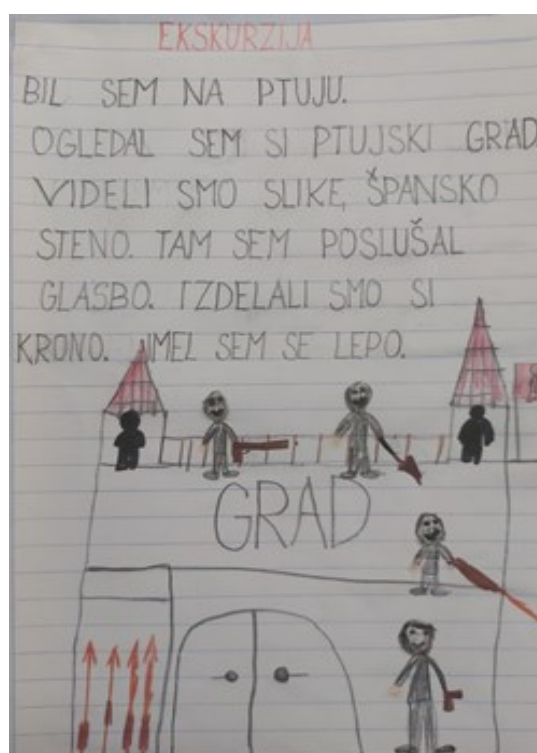 EKSKURZIJA
BIL SEM NA PTUJU.
OGLEDAL SEM SI PTUJSKI GRAD
VIDELI SMO SLIKE, ŠPANSKO
STENO. TAM SEM POSLUŠAL
GLASBO. IZDELALI SMO SI
KRONO. IMEL SEM SE LEPO.
GRAD